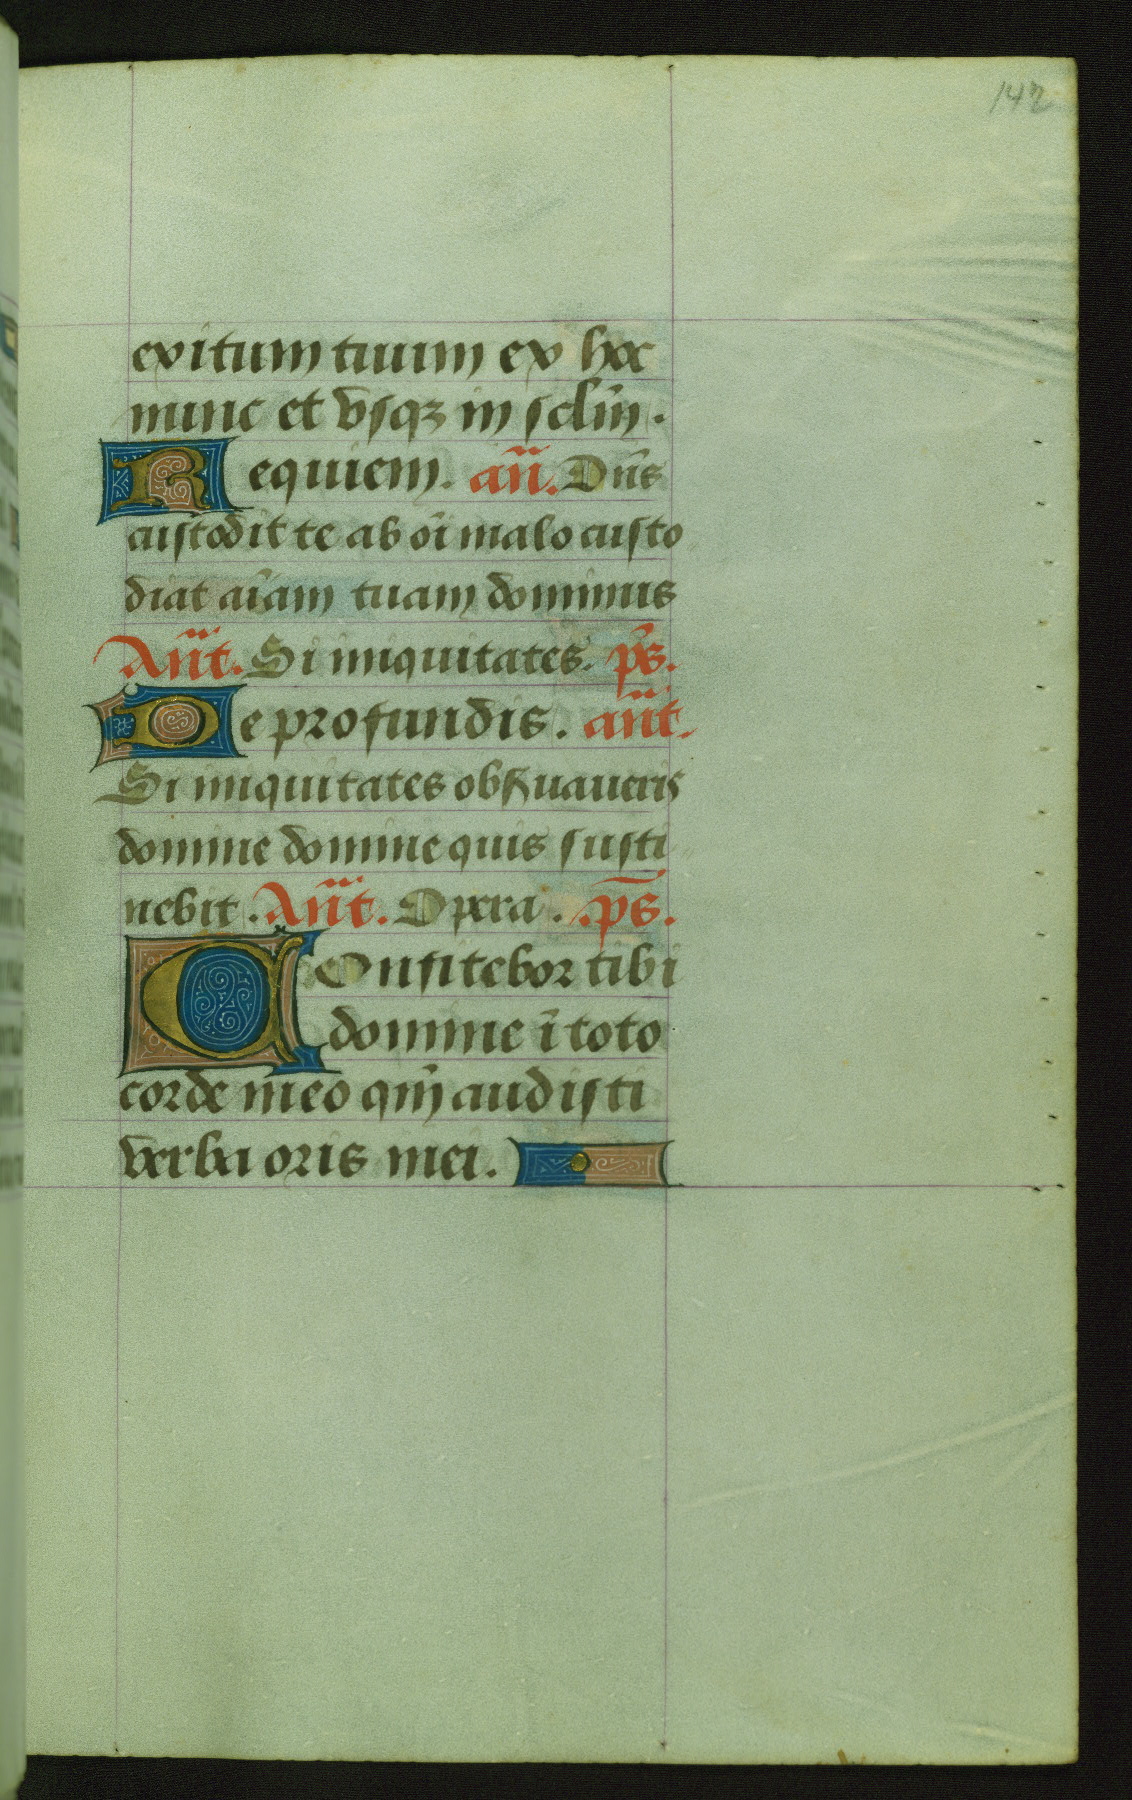 142
exitum tuum ex hoc
nunc et vsqꝫ in sclm̄.
Requiem. an̄. Dn̄s
custodit te ab oī malo custo
diat aīam tuam dominus
An̄t. Si iniquitates. ps̄.
De profundis. an̄t.
Si iniquitates obẜuaueris
domine domine quis susti
nebit. An̄t. Opera. ps̄.
COnfitebor tibi
domine ī toto
corde meo qm̄ audisti
verba oris mei.